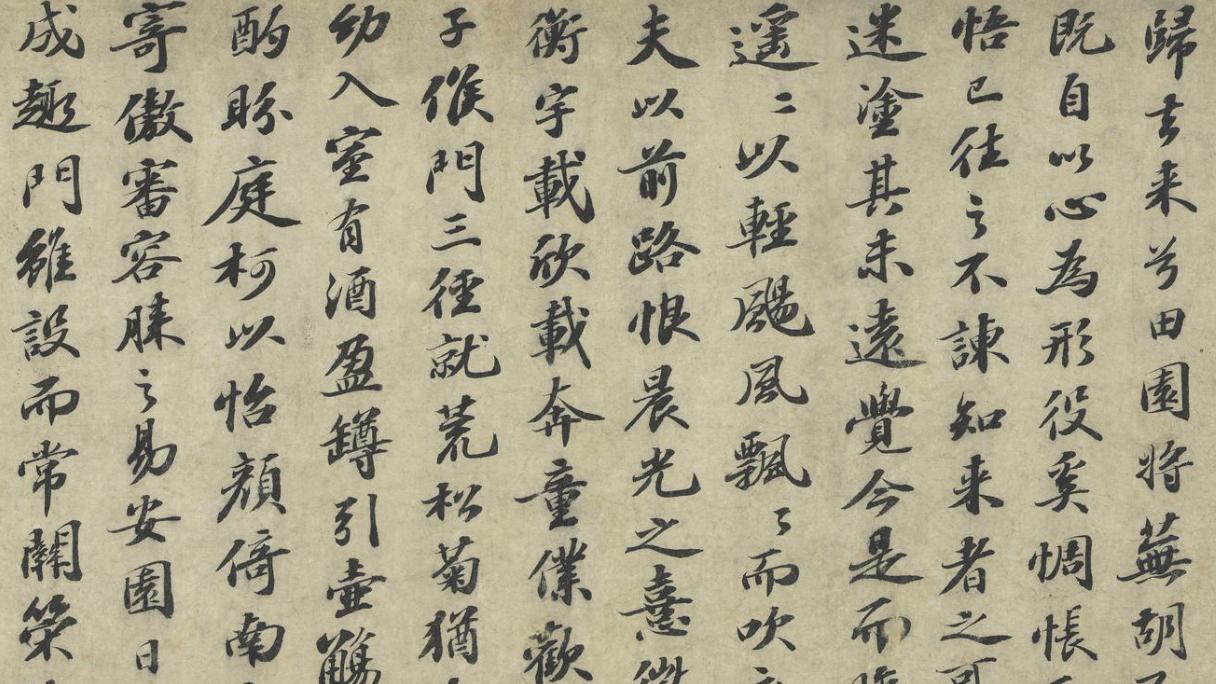 歸去来兮田園將蕪胡
既自以心為形役奚惆悵
悟已往之不諫知来者之可
迷塗其未遠覺今是而
遥〻以輕颺風飄〻而吹
夫以前路恨晨光之熹微
衡宇載欣載奔童僕歡
子候門三徑就荒松菊猶
幼入室有酒盈罇引壷觴
酌眄庭柯以怡顔倚南
寄傲審容膝之易安園日
成趣門雖設而常關策